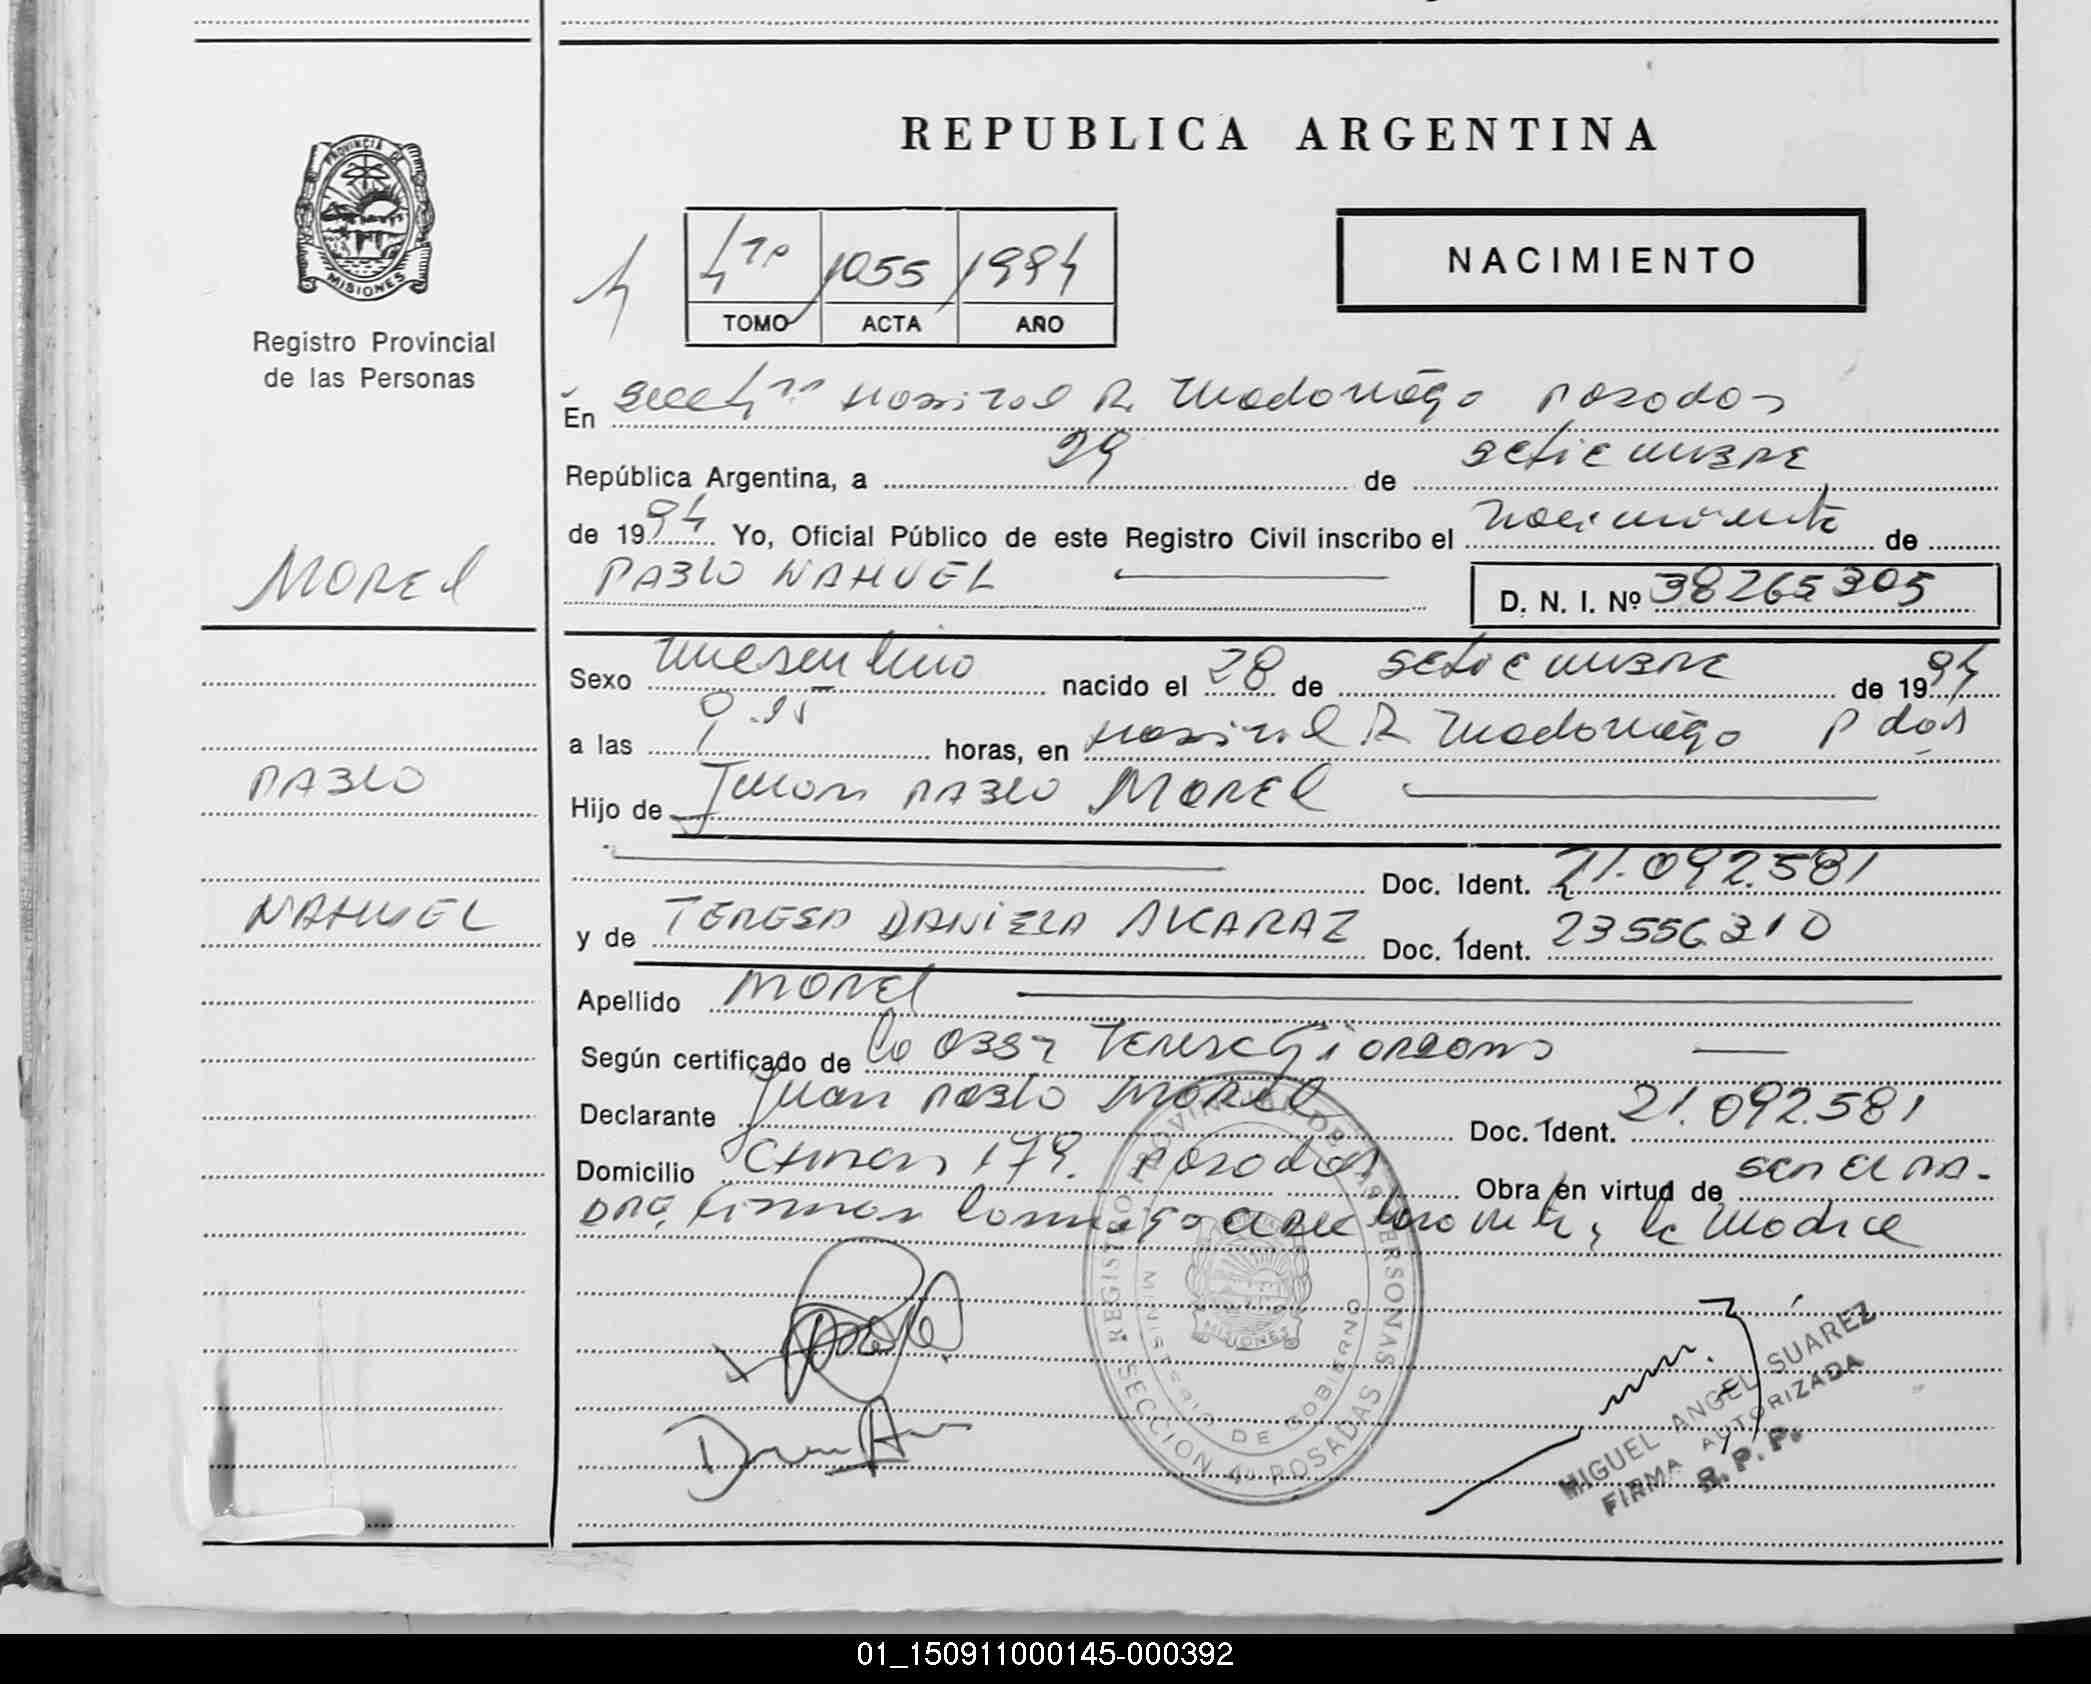 REPUBLICA ARGENTINA
PROVINCIA DE
MISIONES
Registro Provincial
de las Personas
4
4to 1055 1994
TOMO ACTA AÑO
NACIMIENTO
En Secc 4ta Hospital R. Madariaga Posadas
República Argentina, a 29 de Setiembre
de 1994 Yo, Oficial Público de este Registro Civil inscribo el nacimiento de
PABLO NAHUEL D. N. I. Nº 38265305
MOREL
PABLO
NAHUEL
Sexo masculino nacido el 28 de Setiembre de 1994
a las horas, en Hospital R. Madariaga Pdas
Hijo de Juan PABLO MOREL
Doc. Ident. 21.092.581
y de TERESA DANIELA ALCARAZ Doc. Ident. 23556310
Apellido MOREL
Según certificado de la Obst Teresa
Declarante Juan Pablo Morel Doc. Ident. 21.092.581
Domicilio 179. Posadas Obra en virtud de ser el pa-
dre, firman conmigo el declarante y la madre
REGISTRO PROVINCIAL DE LAS PERSONAS
MINISTERIO DE GOBIERNO
MISIONES
SECCION 4º POSADAS
MIGUEL ANGEL SUAREZ
FIRMA AUTORIZADA
R. P. P.
01_150911000145-000392